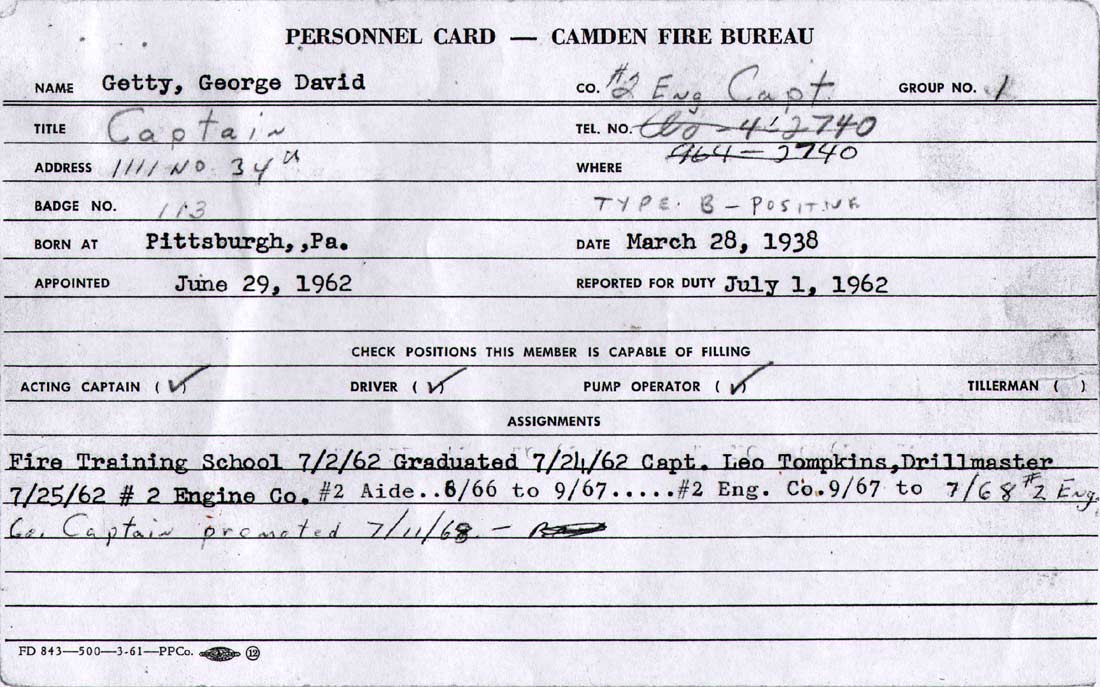 PERSONNEL CARD — CAMDEN FIRE BUREAU
NAME Getty, George David CO. #2 Eng Capt. GROUP NO. 1
TITLE Captain TEL. NO. 4-2740
ADDRESS 1111 NO. 34th WHERE 964-2740
BADGE NO. 113 TYPE B-POSITIVE
BORN AT Pittsburgh,,Pa. DATE March 28, 1938
APPOINTED June 29, 1962 REPORTED FOR DUTY July 1, 1962
CHECK POSITIONS THIS MEMBER IS CAPABLE OF FILLING
ACTING CAPTAIN (✓) DRIVER (✓) PUMP OPERATOR (✓) TILLERMAN ( )
ASSIGNMENTS
Fire Training School 7/2/62 Graduated 7/24/62 Capt. Leo Tompkins,Drillmaster
7/25/62 # 2 Engine Co. #2 Aide..6/66 to 9/67.....#2 Eng. Co.9/67 to 7/68 #2 Eng.
Co. Captain promoted 7/11/68 -
FD 843—500—3-61—PPCo. 12